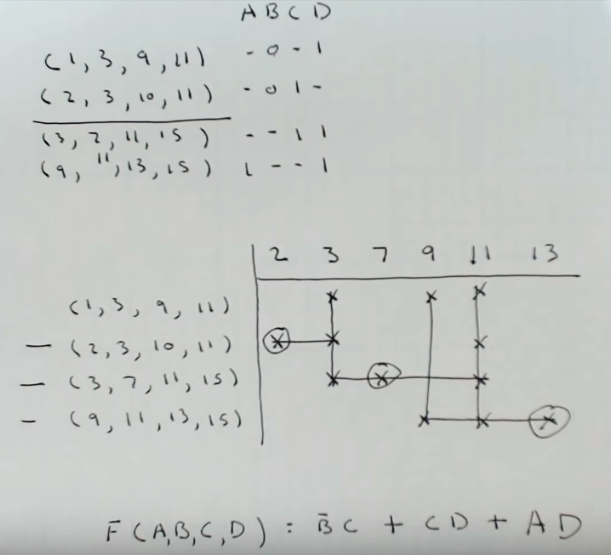 A B C D
(1, 3, 9, 11) - 0 - 1
(2, 3, 10, 11) - 0 1 -
(3, 7, 11, 15) - - 1 1
(9, 11, 13, 15) 1 - - 1
2 3 7 9 11 13
(1, 3, 9, 11) x x x
- (2, 3, 10, 11) x x x
- (3, 7, 11, 15) x x x
- (9, 11, 13, 15) x x x
F (A,B,C,D) = B̄C + CD + AD